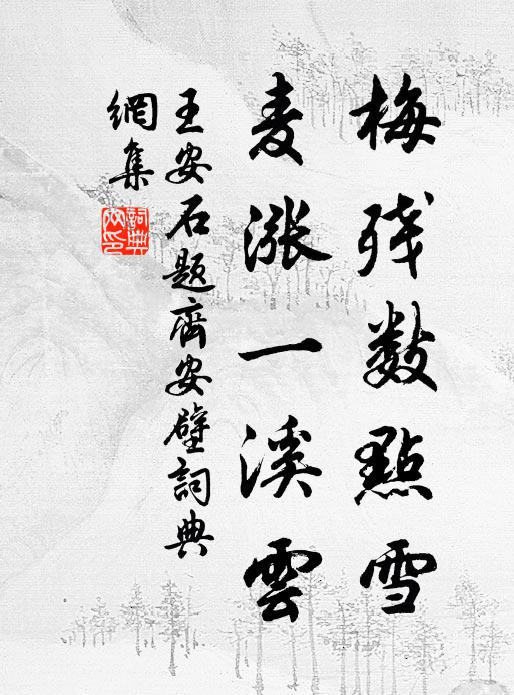 梅残数點雪
麦漲一溪雲
王安石題齊安壁詞典
網集
詞典網印